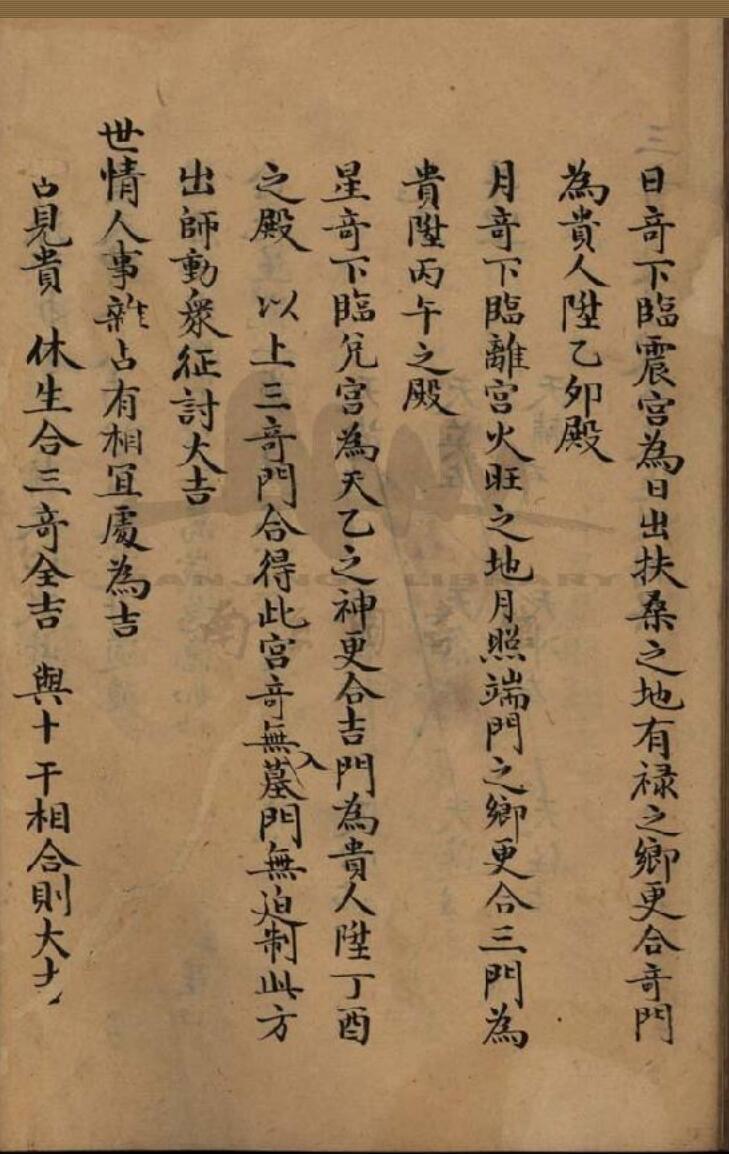 日奇下臨震宮為日出扶桑之地有禄之鄉更合奇門
為貴人陞乙卯殿
月奇下臨離宮火旺之地月照端門之鄉更合三門為
貴陞丙午之殿
星奇下臨兌宮為天乙之神更合吉門為貴人陞丁酉
之殿 以上三奇門合得此宮奇無入墓門無迫制此方
出師動衆征討大吉
世情人事雜占有相宜處為吉
占見貴 休生合三奇全吉 與十干相合則大吉
NANJING LIBRARY